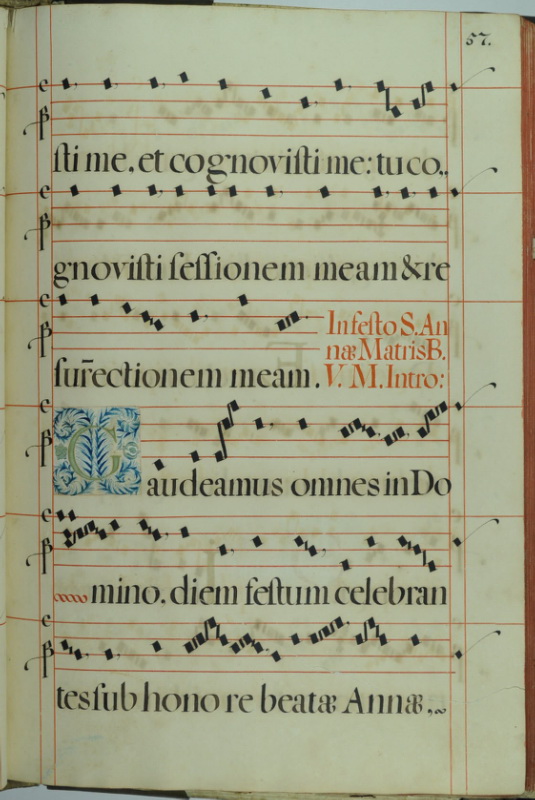 57.
sti me, et cognovisti me: tu co,,
gnovisti sessionem meam & re
sur̃ectionem meam.
In festo S. An
næ Matris B.
V. M. Intro:
Gaudeamus omnes in Do
mino, diem festum celebran
tes sub honore beatæ Annæ,